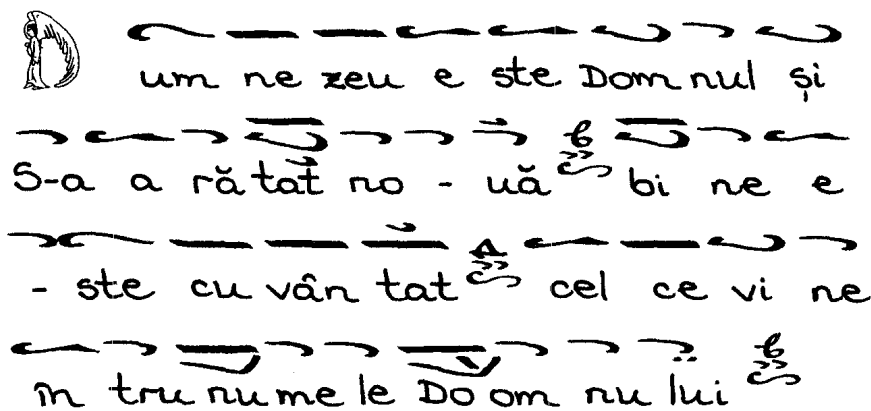 Dum ne zeu e ste Dom nul și
S-a a ră tat no - uă bi ne e
- ste cu vân tat cel ce vi ne
în tru nu me le Do om nu lui